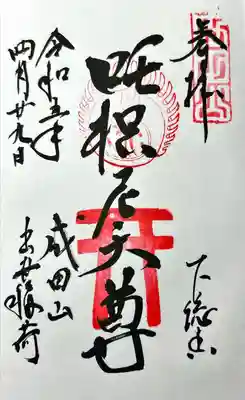 奉拝
下総国
吒枳尼天尊
成田山
出世稲荷
令和五年
四月廿九日